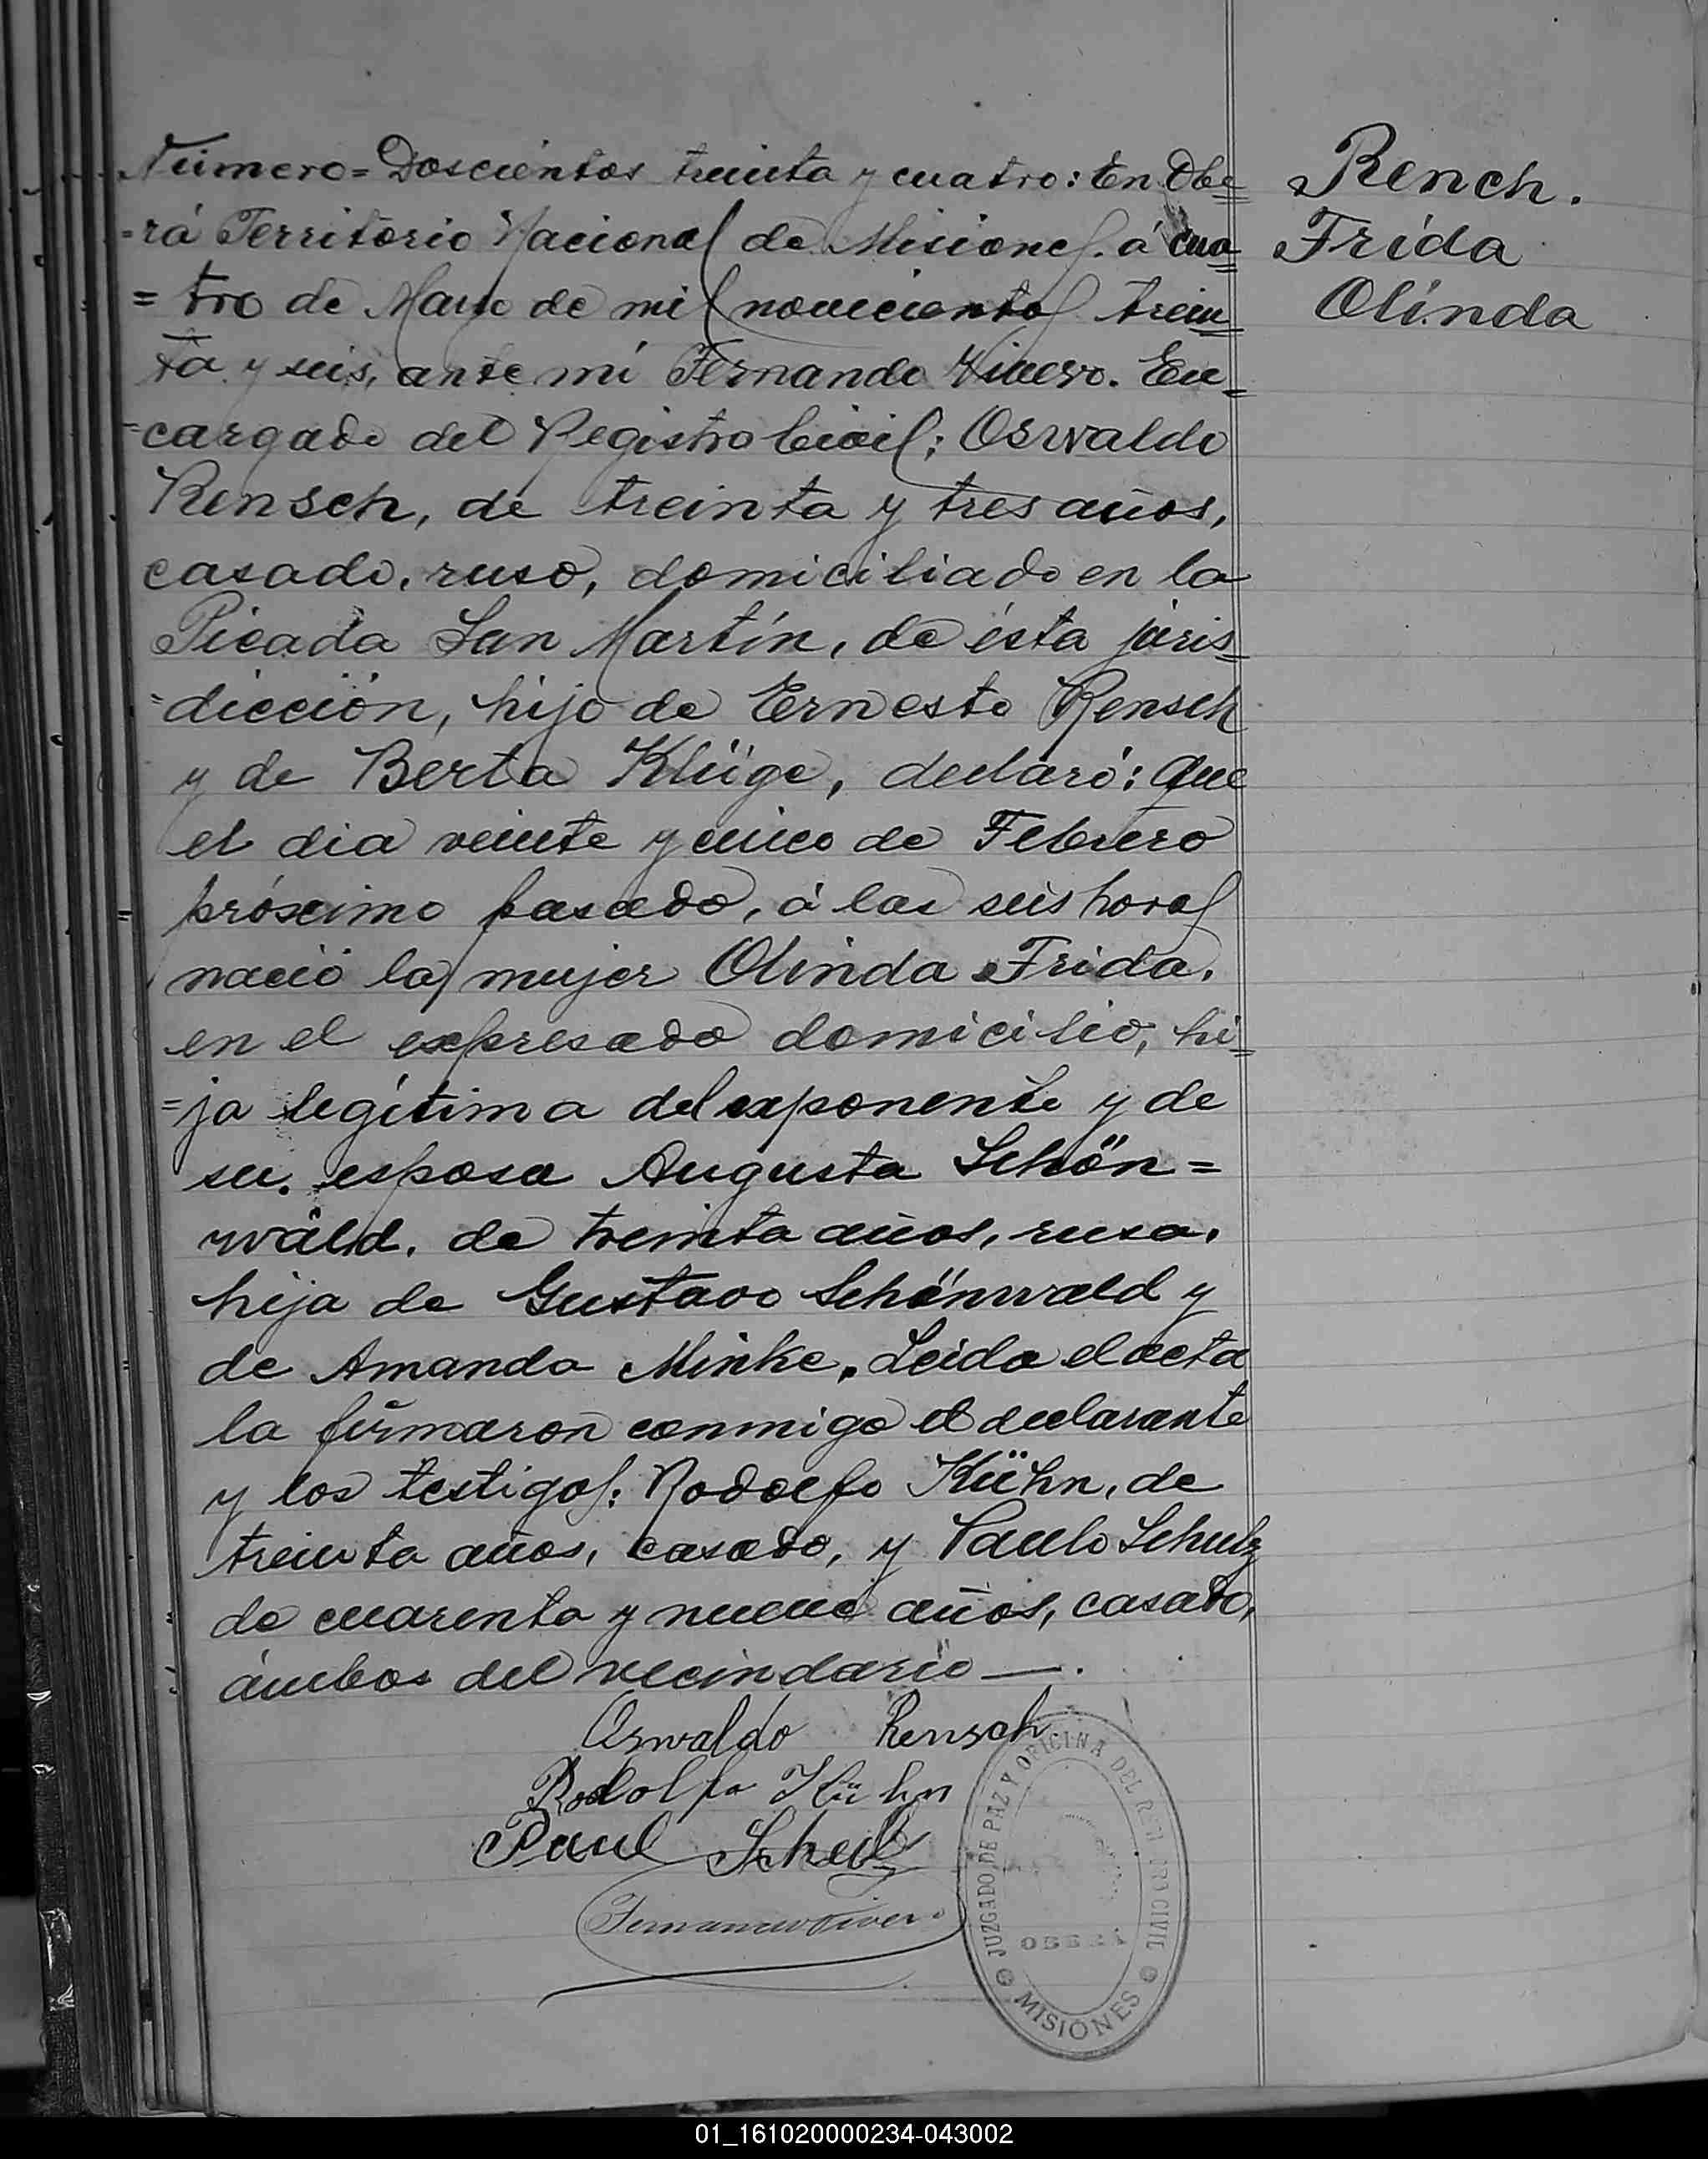 Número= Doscientos treinta y cuatro: En Obe=
=rá Territorio Nacional de Misiones. á cua=
= tro de Mayo de mil novecientos trein=
ta y seis, ante mí Fernando Vivero. En=
=cargado del Registro Civil; Oswaldo
Rensch, de treinta y tres años,
casado, ruso, domiciliado en la
Picada San Martín, de ésta juris=
=dicción, hijo de Ernesto Rensch
y de Berta Klüge, declaró: Que
el dia veinte y cinco de Febrero
próximo pasado, á las seis horas
nació la mujer Olinda Frida,
en el expresado domicilio, hi=
=ja legítima del exponente y de
su esposa Augusta Schön=
wald. de treinta años, rusa,
hija de Gustavo Schönwald y
de Amanda Minke. Leida el acta
la firmaron conmigo el declarante
y los testigos: Rodolfo Kühn, de
treinta años, casado, y Paulo Schulz
de cuarenta y nueve años, casado,
ámbos del vecindario —.
Rench.
Frida
Olinda
Oswaldo Rensch
Rodolfo Kühn
Paul Schulz
Fernando Vivero
JUZGADO DE PAZ Y OFICINA DEL CIVIL
OBERÁ
MISIONES
01_161020000234-043002